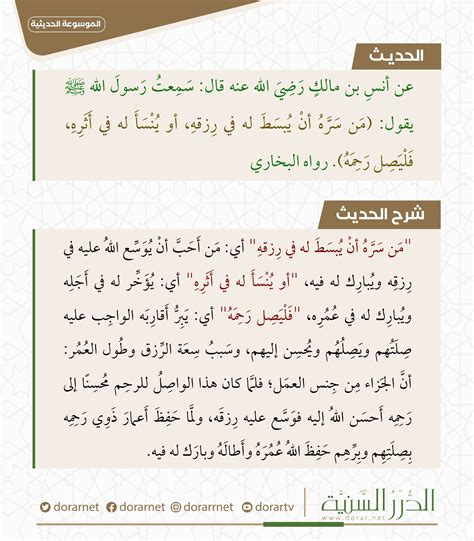 الموسوعة الحديثية
الحديث
عن أنسِ بن مالكٍ رَضِيَ الله عنه قال: سَمِعتُ رَسولَ الله ﷺ
يقول: (مَن سَرَّهُ أنْ يُبسَطَ له في رِزقِهِ، أو يُنْسَأَ له في أثَرِهِ،
فَلْيَصِل رَحِمَهُ). رواه البخاري
شرح الحديث
"مَن سَرَّهُ أنْ يُبسَطَ له في رِزقِهِ" أي: مَن أحَبَّ أنْ يُوَسِّعَ اللهُ عليه في
رِزقِه ويُبارِكَ له فيه، "أو يُنْسَأَ له في أثَرِهِ" أي: يُؤَخِّرَ له في أجَلِه
ويُبارِكَ له في عُمُرِه، "فَلْيَصِل رَحِمَهُ" أي: يَبِرُّ أقارِبَه الواجِب عليه
صِلَتُهم ويَصِلُهُم ويُحسِن إليهم، وسَببُ سِعَة الرِّزق وطُول العُمُر:
أنَّ الجَزاءَ مِن جِنس العمَل؛ فلمَّا كان هذا الواصِلُ للرحِم مُحسِنًا إلى
رَحِمِه أحسَن اللهُ إليه فوَسَّع عليه رِزقَه، ولمَّا حَفِظَ أعمارَ ذَوِي رَحِمِه
بِصِلَتِهم وبِرِّهِم حَفِظَ اللهُ عُمُرَهُ وأطالَهُ وبارَكَ له فيه.
dorarnet dorarnet dorarrnet dorartv الدرر السنية
www.dorar.net